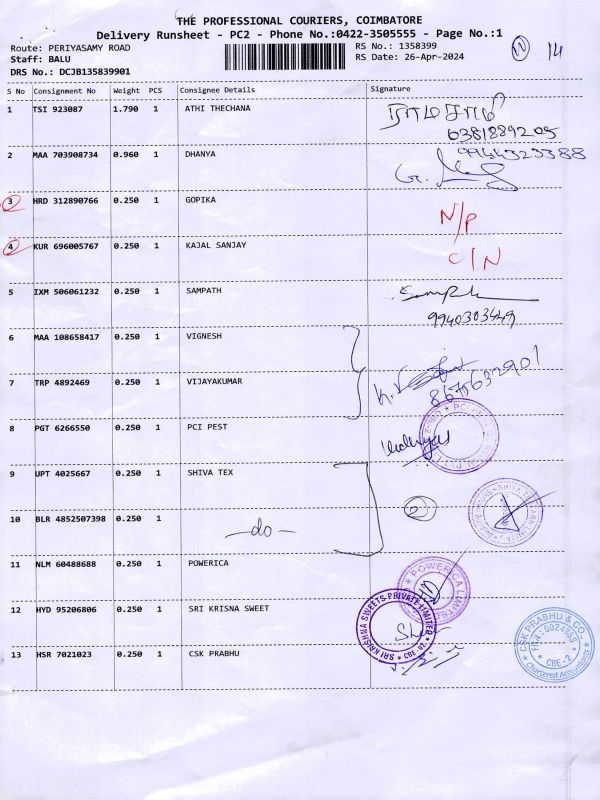 THE PROFESSIONAL COURIERS, COIMBATORE
Delivery Runsheet - PC2 - Phone No.:0422-3505555 - Page No.:1
Route: PERIYASAMY ROAD
RS No.: 1358399
Staff: BALU
RS Date: 26-Apr-2024
DRS No.: DCJB135839901
14
S No Consignment No Weight PCS Consignee Details Signature
1 TSI 923087 1.790 1 ATHI THECHANA
2 MAA 703908734 0.960 1 DHANYA
9944323388
3 HRD 312890766 0.250 1 GOPIKA
N/P
4 KUR 696005767 0.250 1 KAJAL SANJAY
C/N
5 IXM 506061232 0.250 1 SAMPATH
9940303449
6 MAA 108658417 0.250 1 VIGNESH
7 TRP 4892469 0.250 1 VIJAYAKUMAR
8675632901
8 PGT 6266550 0.250 1 PCI PEST
9 UPT 4025667 0.250 1 SHIVA TEX
10 BLR 4852507398 0.250 1
-do-
11 NLM 60488688 0.250 1 POWERICA
POWERICA LIMITED
12 HYD 95206806 0.250 1 SRI KRISNA SWEET
SRI KRISHNA SWEETS PRIVATE LIMITED
13 HSR 7021023 0.250 1 CSK PRABHU
CSK PRABHU & CO.
CBE-2
Chartered Accountants